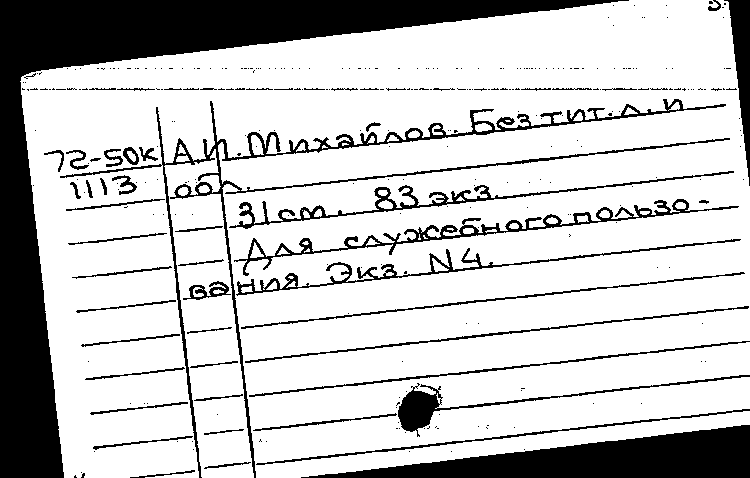 72-50к А.И. Михайлов. Без тит. л. и
1113 обл.
31 cm. 83 экз.
Для служебного пользо-
вания. Экз. N4.